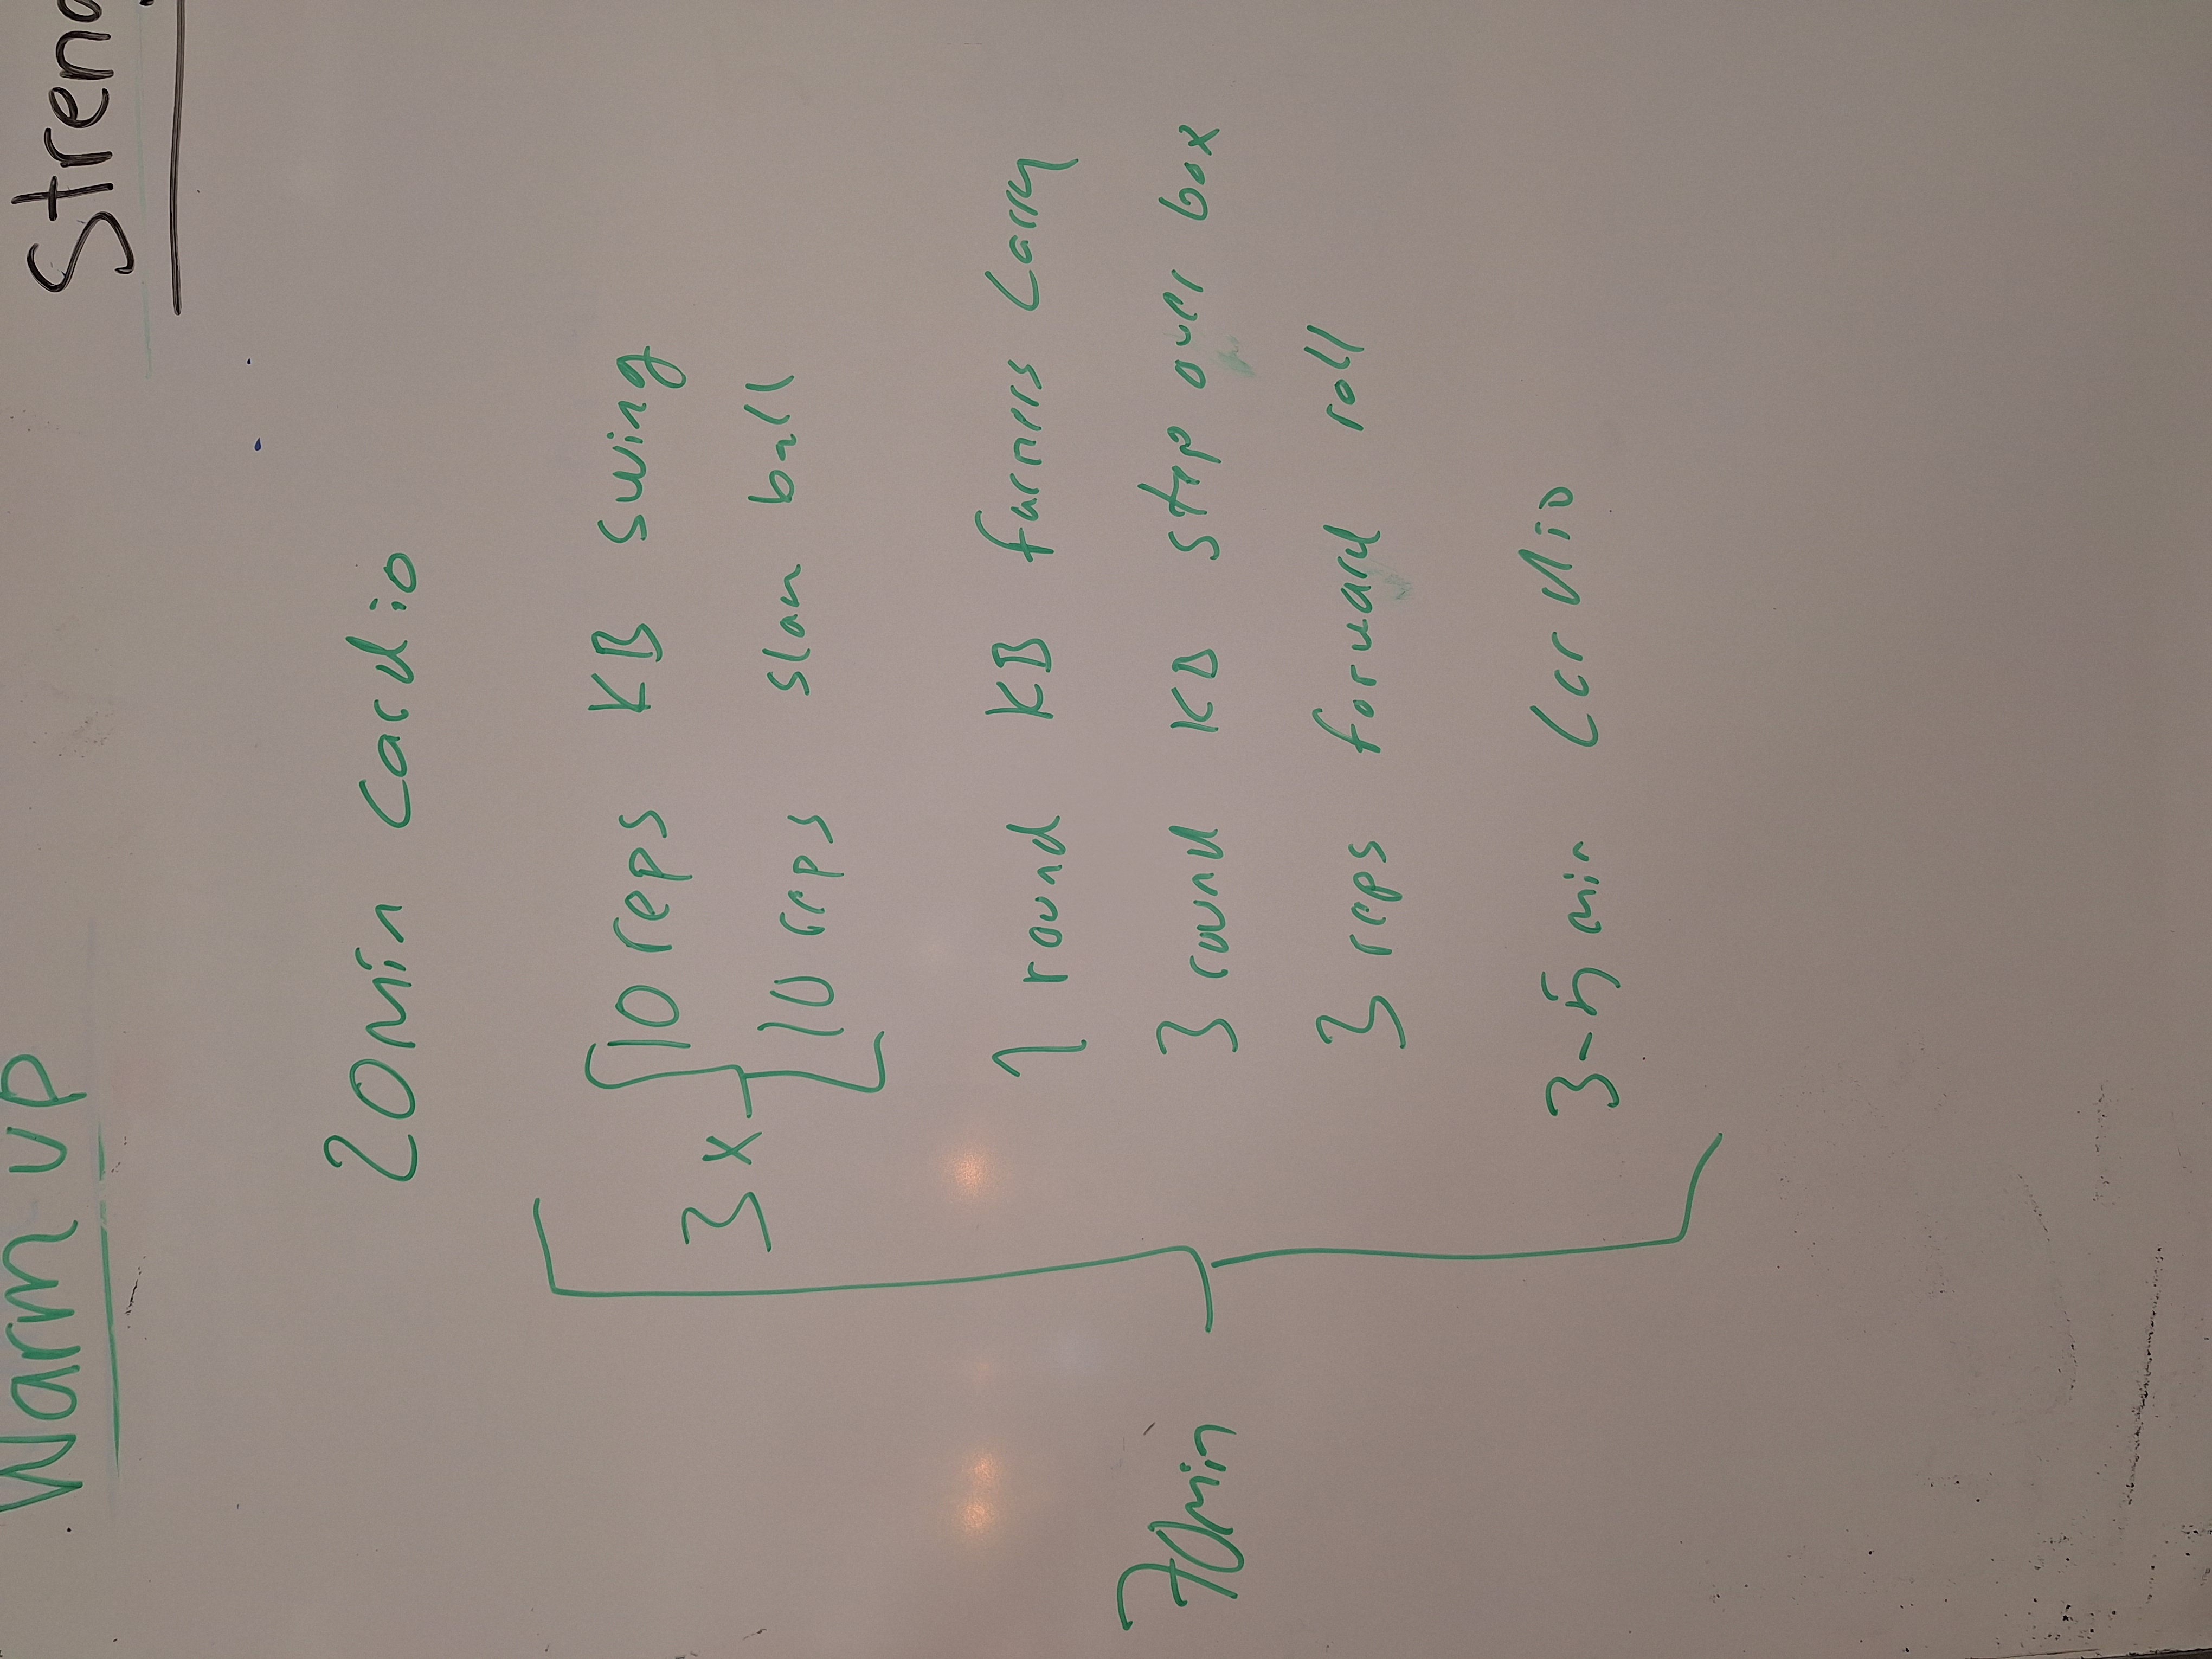 Warm-up
20min cardio
10 reps KB swing
3x
10 reps slam ball
1 round KB farmers Carry
70min
3 round KB step over box
3 reps forward roll
3-5 min Cardio